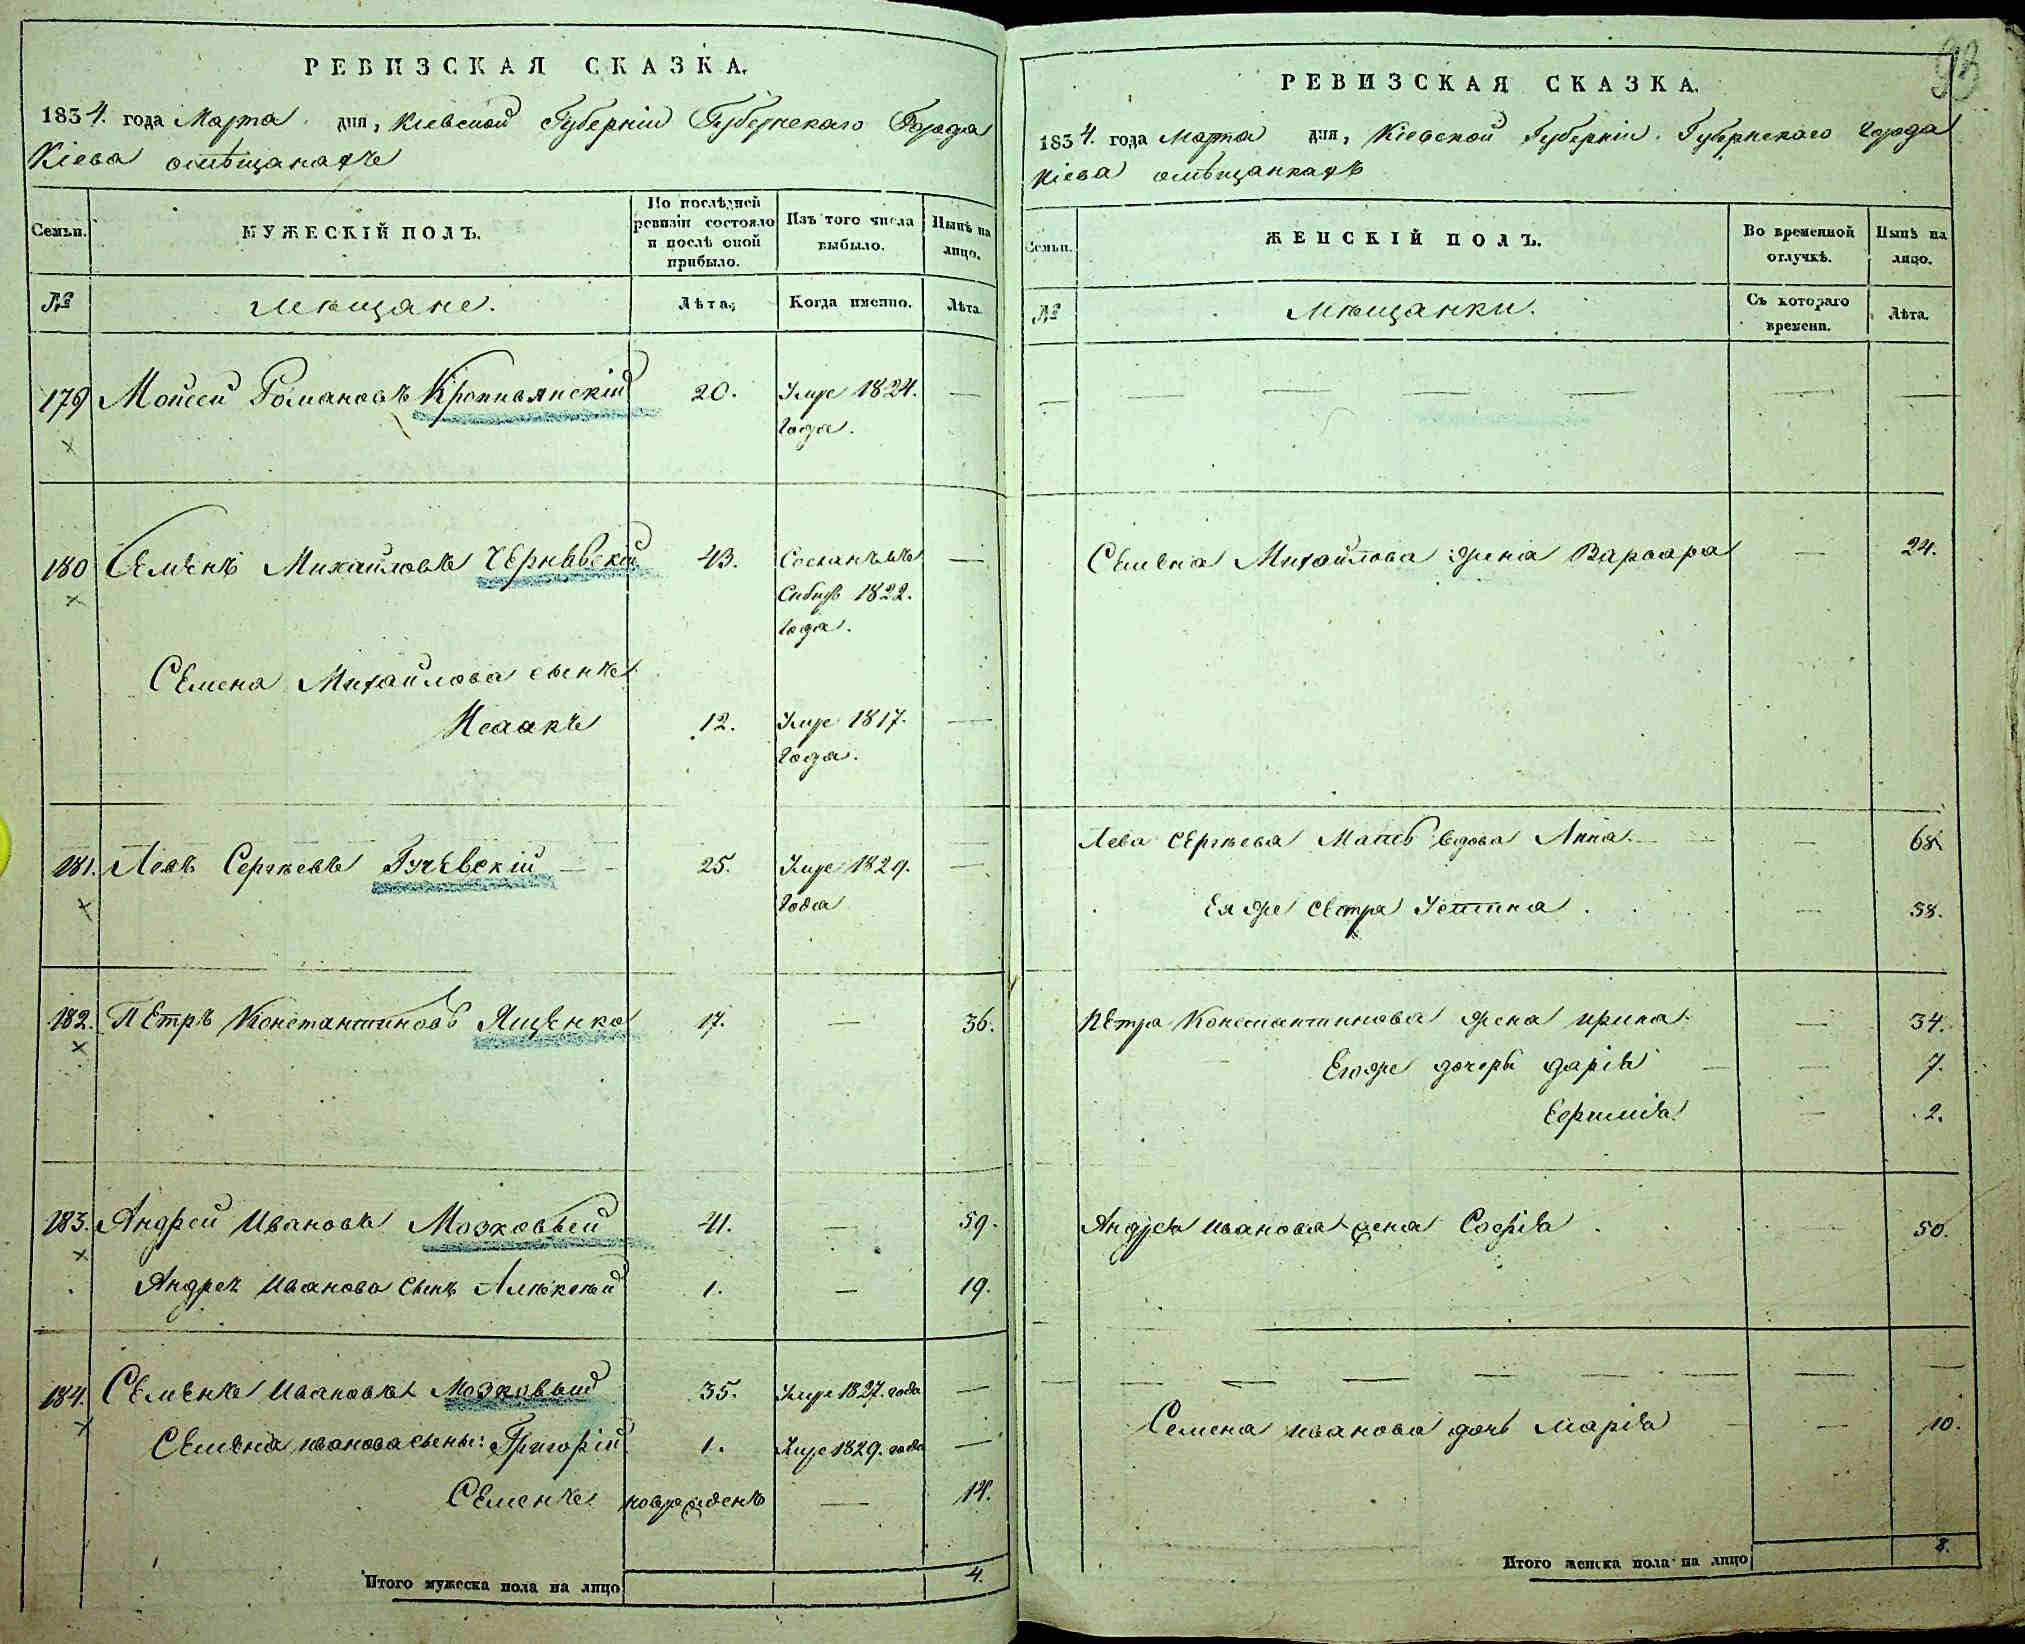 РЕВИЗСКАЯ СКАЗКА.
1834. года Марта дня, Кіевской Губерніи Губернскаго Города
Кіева омѣщанахъ
Семьи.
МУЖЕСКІЙ ПОЛЪ.
По послѣдней ревизіи состояло и послѣ оной прибыло.
Изъ того числа выбыло.
Нынѣ на лицо.
№
Мѣщане.
Лѣта.
Когда именно.
Лѣта.
179 Моисей Романовъ Кропивянскій 20. Умре 1824. —
года.
180 Семенъ Михайловъ Чернявскій 43. Сосланъ въ —
Сибирь 1822.
года.
Семена Михайлова сынъ
Исаакъ 12. Умре 1817. —
года.
181. Левъ Сергѣевъ Гучевскій — 25. Умре 1829. —
года
182. Петръ Константиновъ Ященко 17. — 36.
183. Андрей Ивановъ Мозковый 41. — 59.
Андрея Иванова сынъ Алексѣй 1. — 19.
184. Семенъ Ивановъ Мозковый 35. Умре 1827. года —
Семена Иванова сыны: Григорій 1. Умре 1829. года —
Семенъ новорожденъ — 14.
Итого мужеска пола на лицо 4.
93
РЕВИЗСКАЯ СКАЗКА.
1834. года Марта дня, Кіевской Губерніи. Губернскаго города
Кіева омѣщанкахъ
Семьи.
ЖЕНСКІЙ ПОЛЪ.
Во временной отлучкѣ.
Нынѣ на лицо.
№
Мѣщанки.
Съ котораго времени.
Лѣта.
— — — — — — —
Семена Михайлова жена Варвара — 24.
Лева Сергѣева Мать вдова Анна — — 68.
Ея же сестра Устина — 58.
Петра Константинова жена Ирина — 34.
Его же дочери Дарія — — 7.
Евфимія — 2.
Андрея Иванова жена Софія 50.
— — — — — — — —
Семена Иванова дочь Марія — — 10.
Итого женска пола на лицо 8.